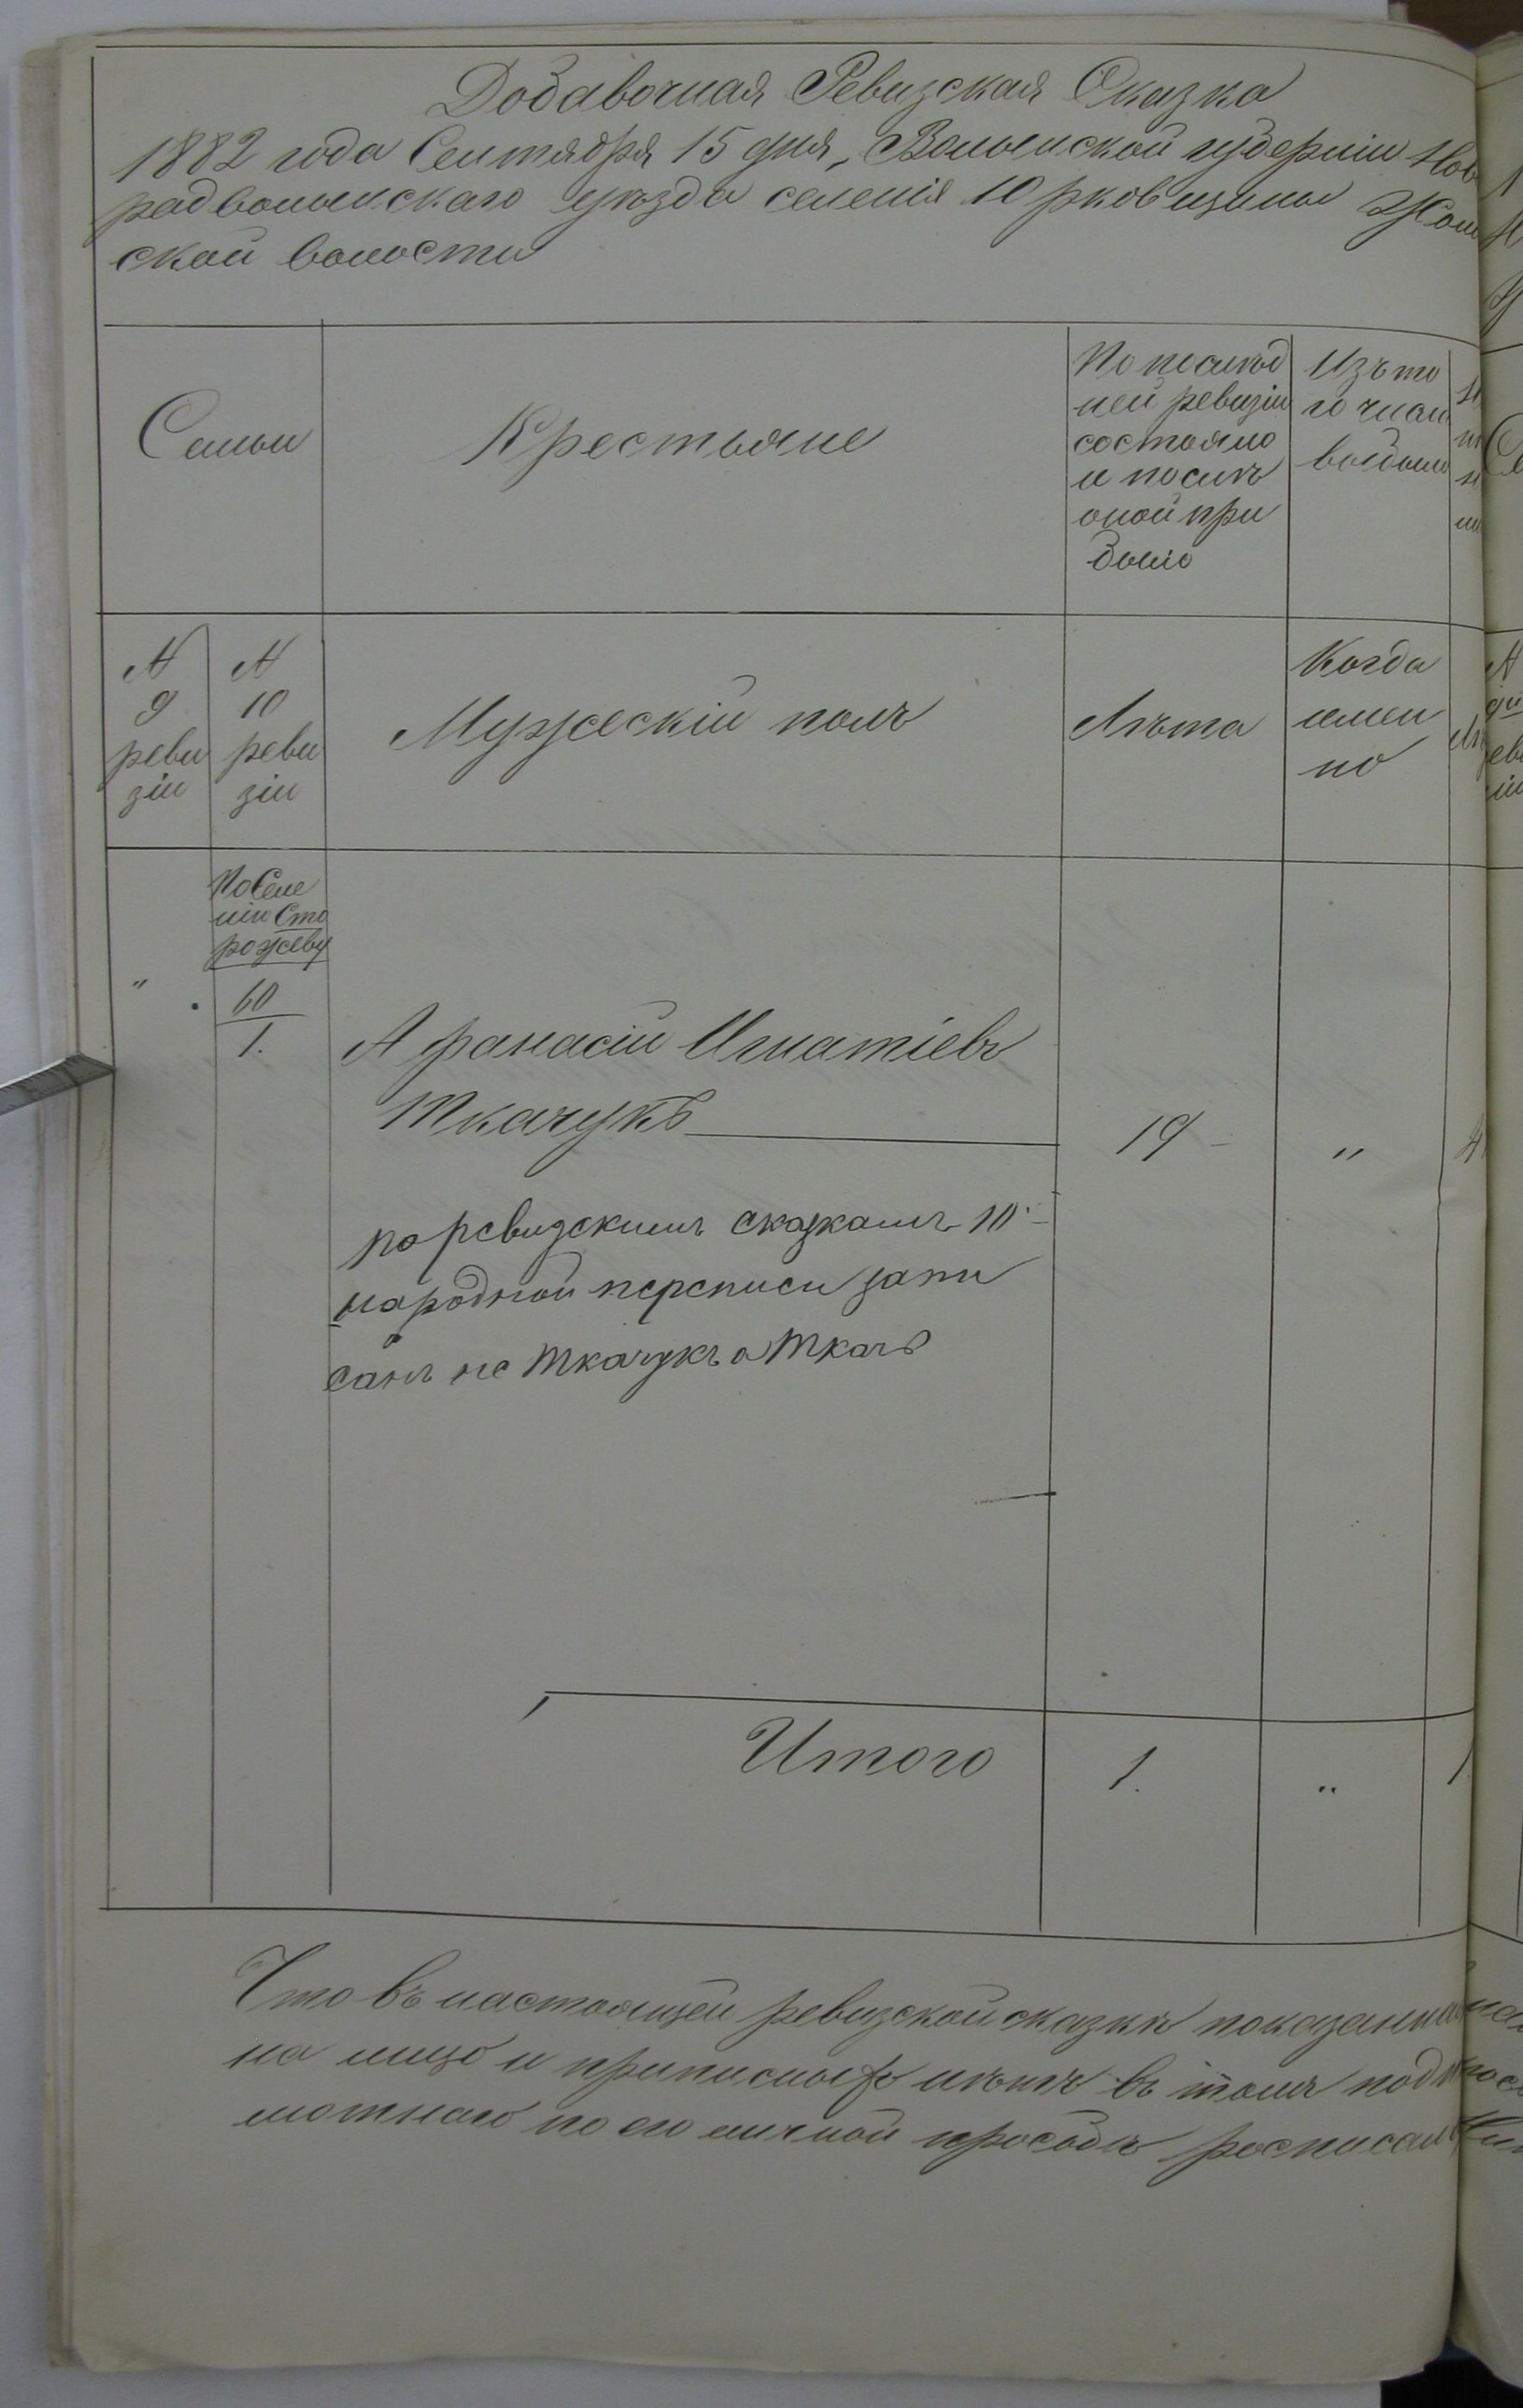 Добавочная Ревизская Сказка
1882 года Сентября 15 дня, Волынской губерніи Нов
радволынскаго уѣзда селенія Юрковщины Жол
ской волости
Семьи
Крестьяне
По послѣд
ней ревизіи
состояло
и послѣ
оной при
было
Изъ то
го числ
выбыло
N
9
реви
зіи
N
10
реви
зіи
Мужескій полъ
Лѣта
Когда
имен
но
По Селе
нію Сто
рожеву
"
60
1.
Афанасій Игнатіевъ
Ткачукъ
19
"
по ревизскимъ сказкамъ 10й
народной переписи запи
санъ не Ткачукъ а Ткачъ
Итого
1.
"
1
Что въ настоящей ревизской сказкѣ показанн
на лицо и приписныхъ нѣтъ въ томъ под
мотнаго по его личной просьбѣ росписал